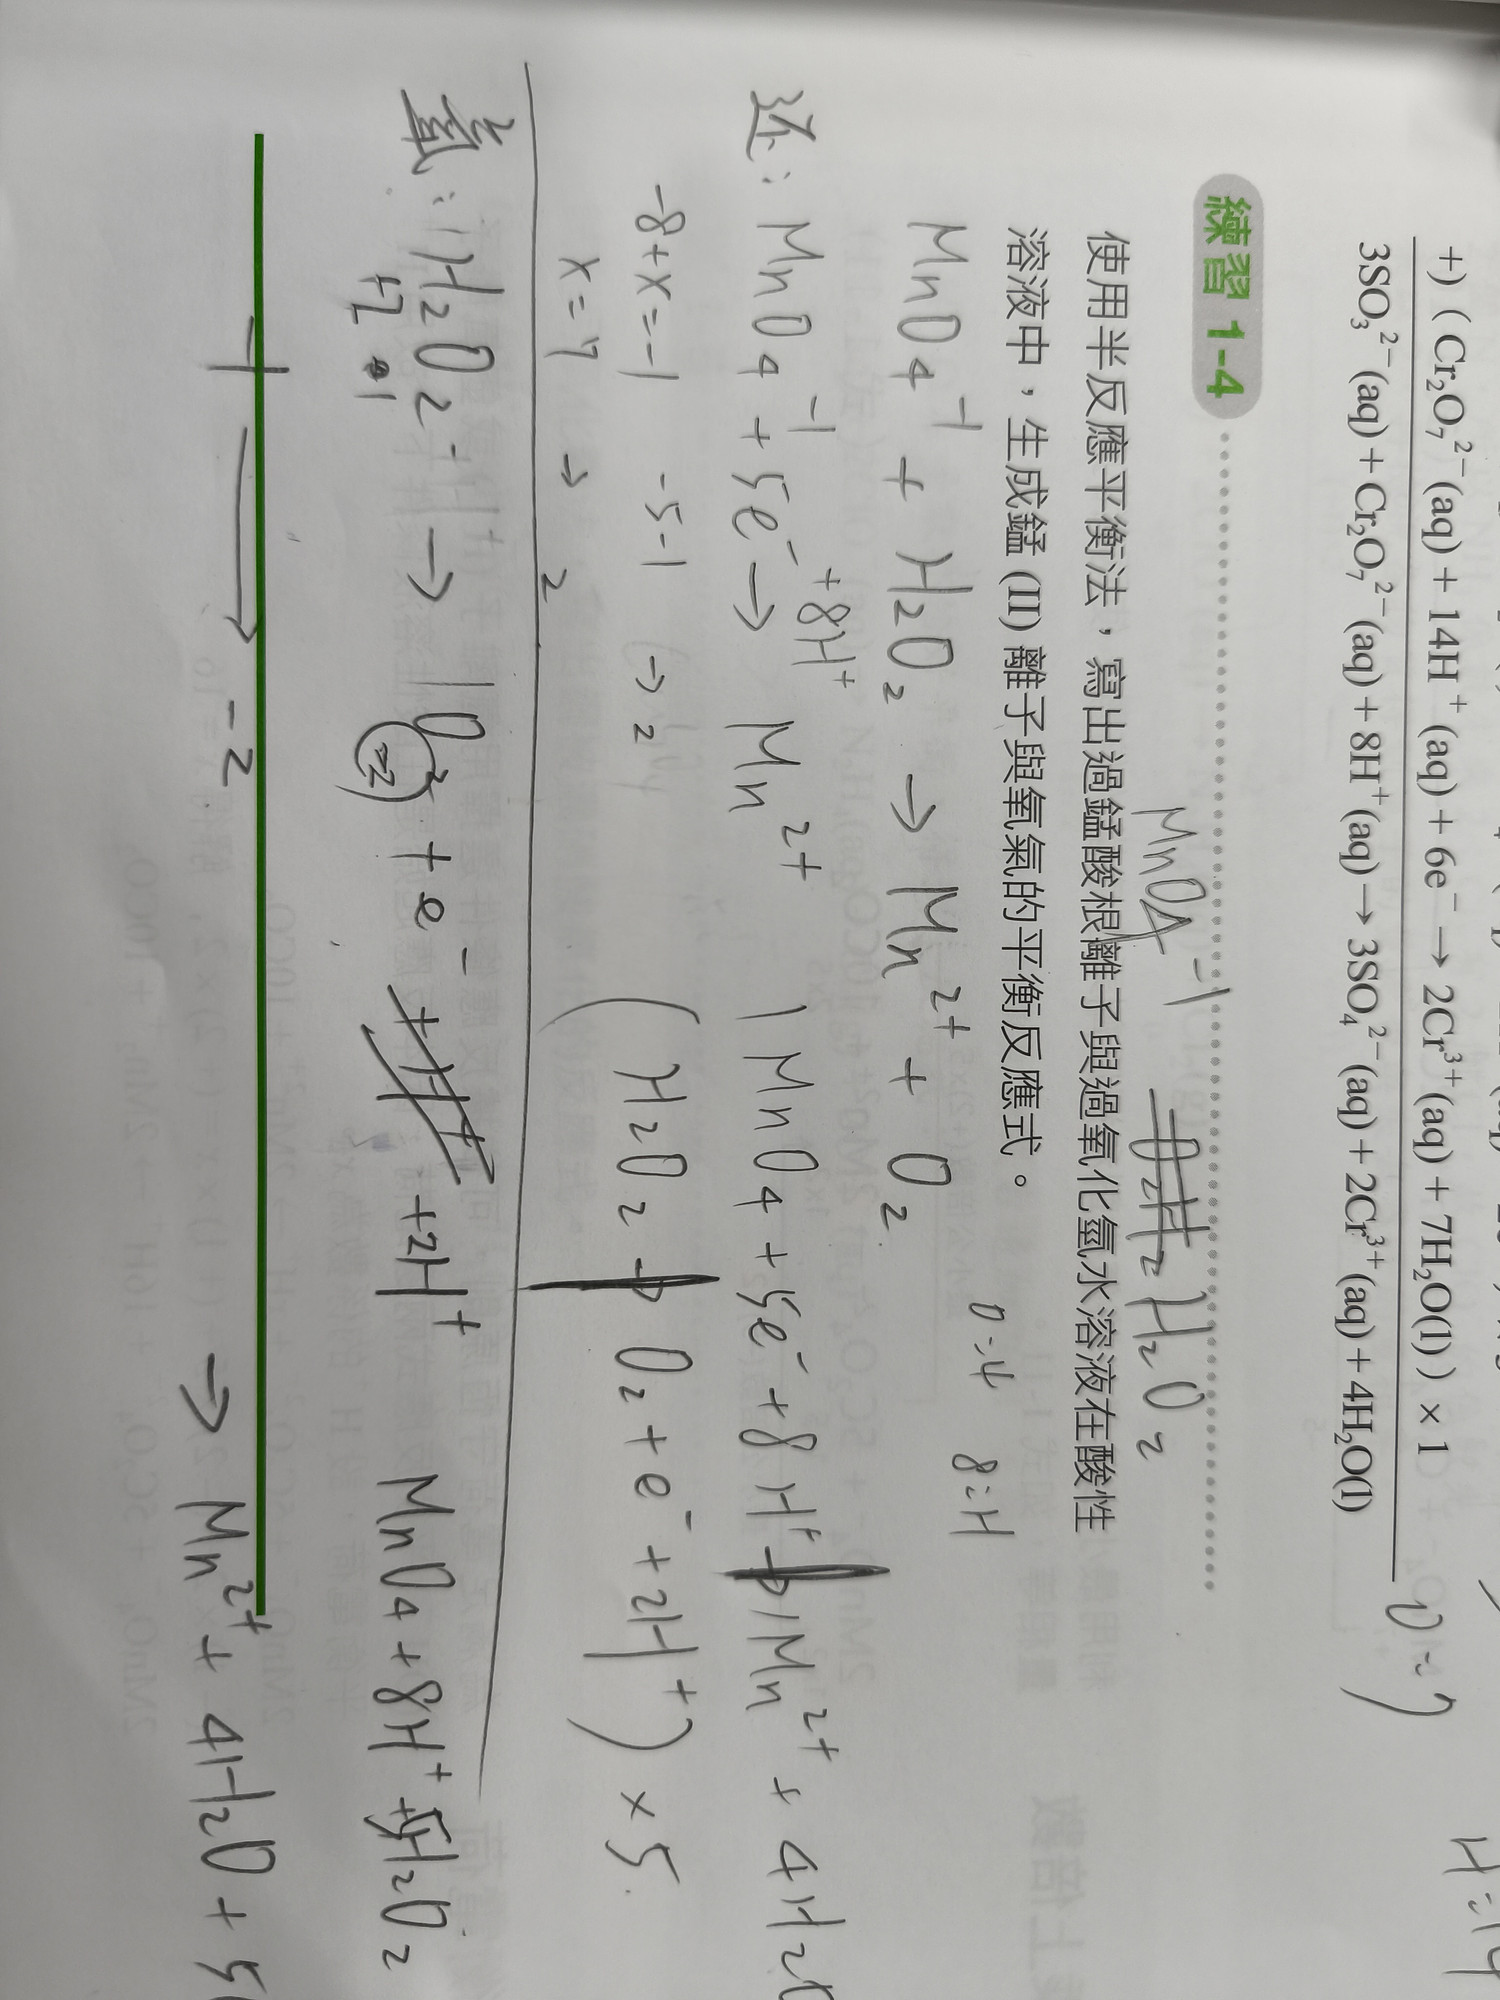 +) (Cr₂O₇²⁻(aq) + 14H⁺(aq) + 6e⁻ → 2Cr³⁺(aq) + 7H₂O(l)) × 1
3SO₃²⁻(aq) + Cr₂O₇²⁻(aq) + 8H⁺(aq) → 3SO₄²⁻(aq) + 2Cr³⁺(aq) + 4H₂O(l)
練習 1-4
MnO₄⁻¹ H₂O₂
使用半反應平衡法，寫出過錳酸根離子與過氧化氫水溶液在酸性
溶液中，生成錳 (II) 離子與氧氣的平衡反應式。
O=4 8=H
MnO₄⁻¹ + H₂O₂ → Mn²⁺ + O₂
+8H⁺
还: MnO₄⁻¹ + 5e⁻ → Mn²⁺
1MnO₄ + 5e⁻ + 8H⁺ → 1Mn²⁺ + 4H₂O
-8+x=-1 -5-1 → 2
(H₂O₂ → O₂ + e⁻ + 2H⁺) × 5
x=7 → 2
氧: H₂O₂ → O₂ + e⁻ + 2H⁺
+2 -2
MnO₄ + 8H⁺ + 5H₂O₂
-1 → -2
→ Mn²⁺ + 4H₂O + 5